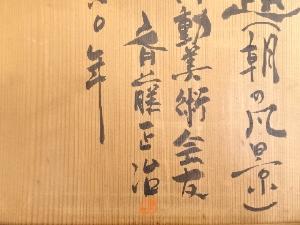 (朝の風景)
動美術会友
斉藤正治
〇年